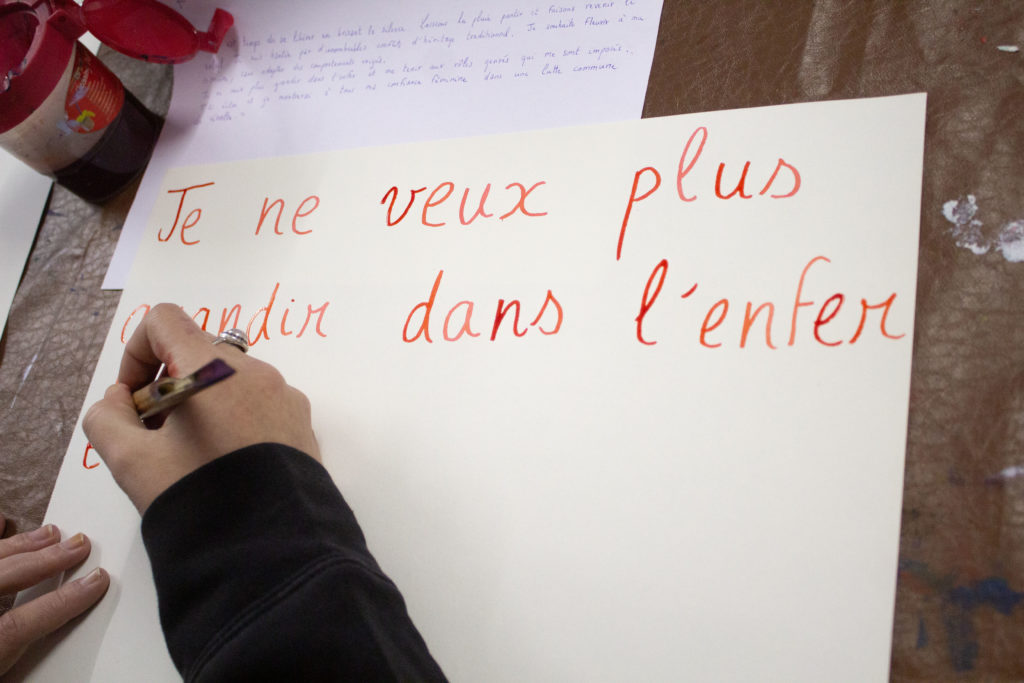 temps de se libérer en brisant le silence. Laissons la pluie partir et faisons revenir le
par d'innombrables d'héritage traditionnel. Je souhaite fleurir à ma
sans adopter des comportements exigés.
Je ne veux plus grandir dans l'enfer et me tenir aux rôles genrés qui me sont imposés.
et je montrerai à tous ma confiance féminine dans une lutte commune
Je ne veux plus
grandir dans l'enfer
e